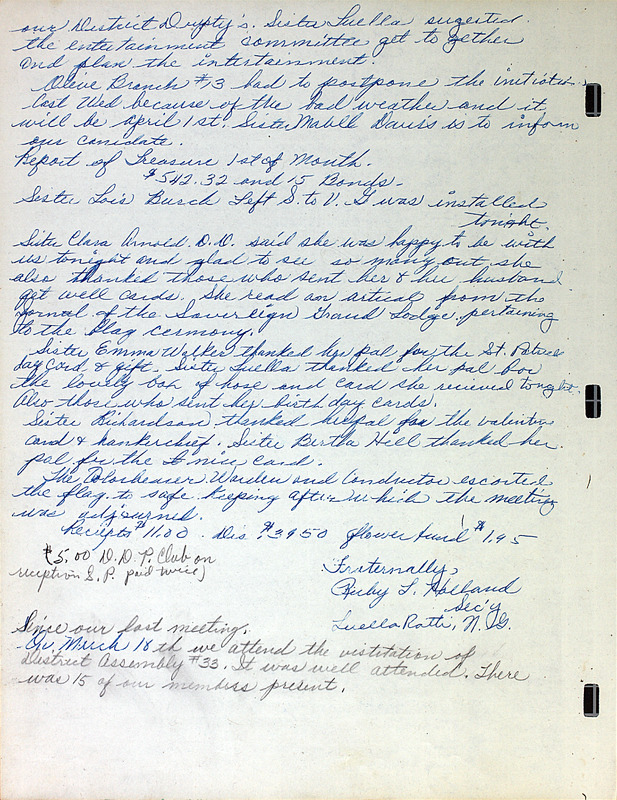 our District Deputy's. Sister Luella sugested
the entertainment committee get to gether
and plan the intertainment.
Olive Branch #13 had to postpone the initiation
last Wed because of the bad weather and it
will be april 1st. Sister Mabell Davis is to inform
our canidate.
Report of Treasure 1st of Month.
$542.32 and 15 Bonds.
Sister Lois Busch Left S. to V. G was installed
tonight.
Sister Clara Arnold. D.D. said she was happy to be with
us tonight and glad to see so many out, she
also thanked those who sent her & her husband
get well cards. She read an artical from the
jornal of the Sovereign Grand Lodge, pertaining
to the flag cermony.
Sister Emma Walker thanked her pal for the St. Patrick
day card & gift. Sister Luella thanked her pal for
the lovely box of hose and card she recieved tonight.
Also those who sent her birth day cards.
Sister Richardson thanked her pal for the valentine
card & hankerchief. Sister Bertha Hill thanked her
pal for the nice card.
The Colorbearer Warden and Conductor escorted
the flag to safe keeping after which the meeting
was adjourned.
Reciepts $11.00. Dis. $39.50 flower fund $1.95
$5.00 D.D.P. Club on
reception S. P. paid twice)
Fraternally,
Ruby L. Holland
Sec'y
Luella Ratti, N.G.
Since our last meeting.
On March 18th we attend the vistitation of
District Assembly #33. It was well attended. There
was 15 of our members present.